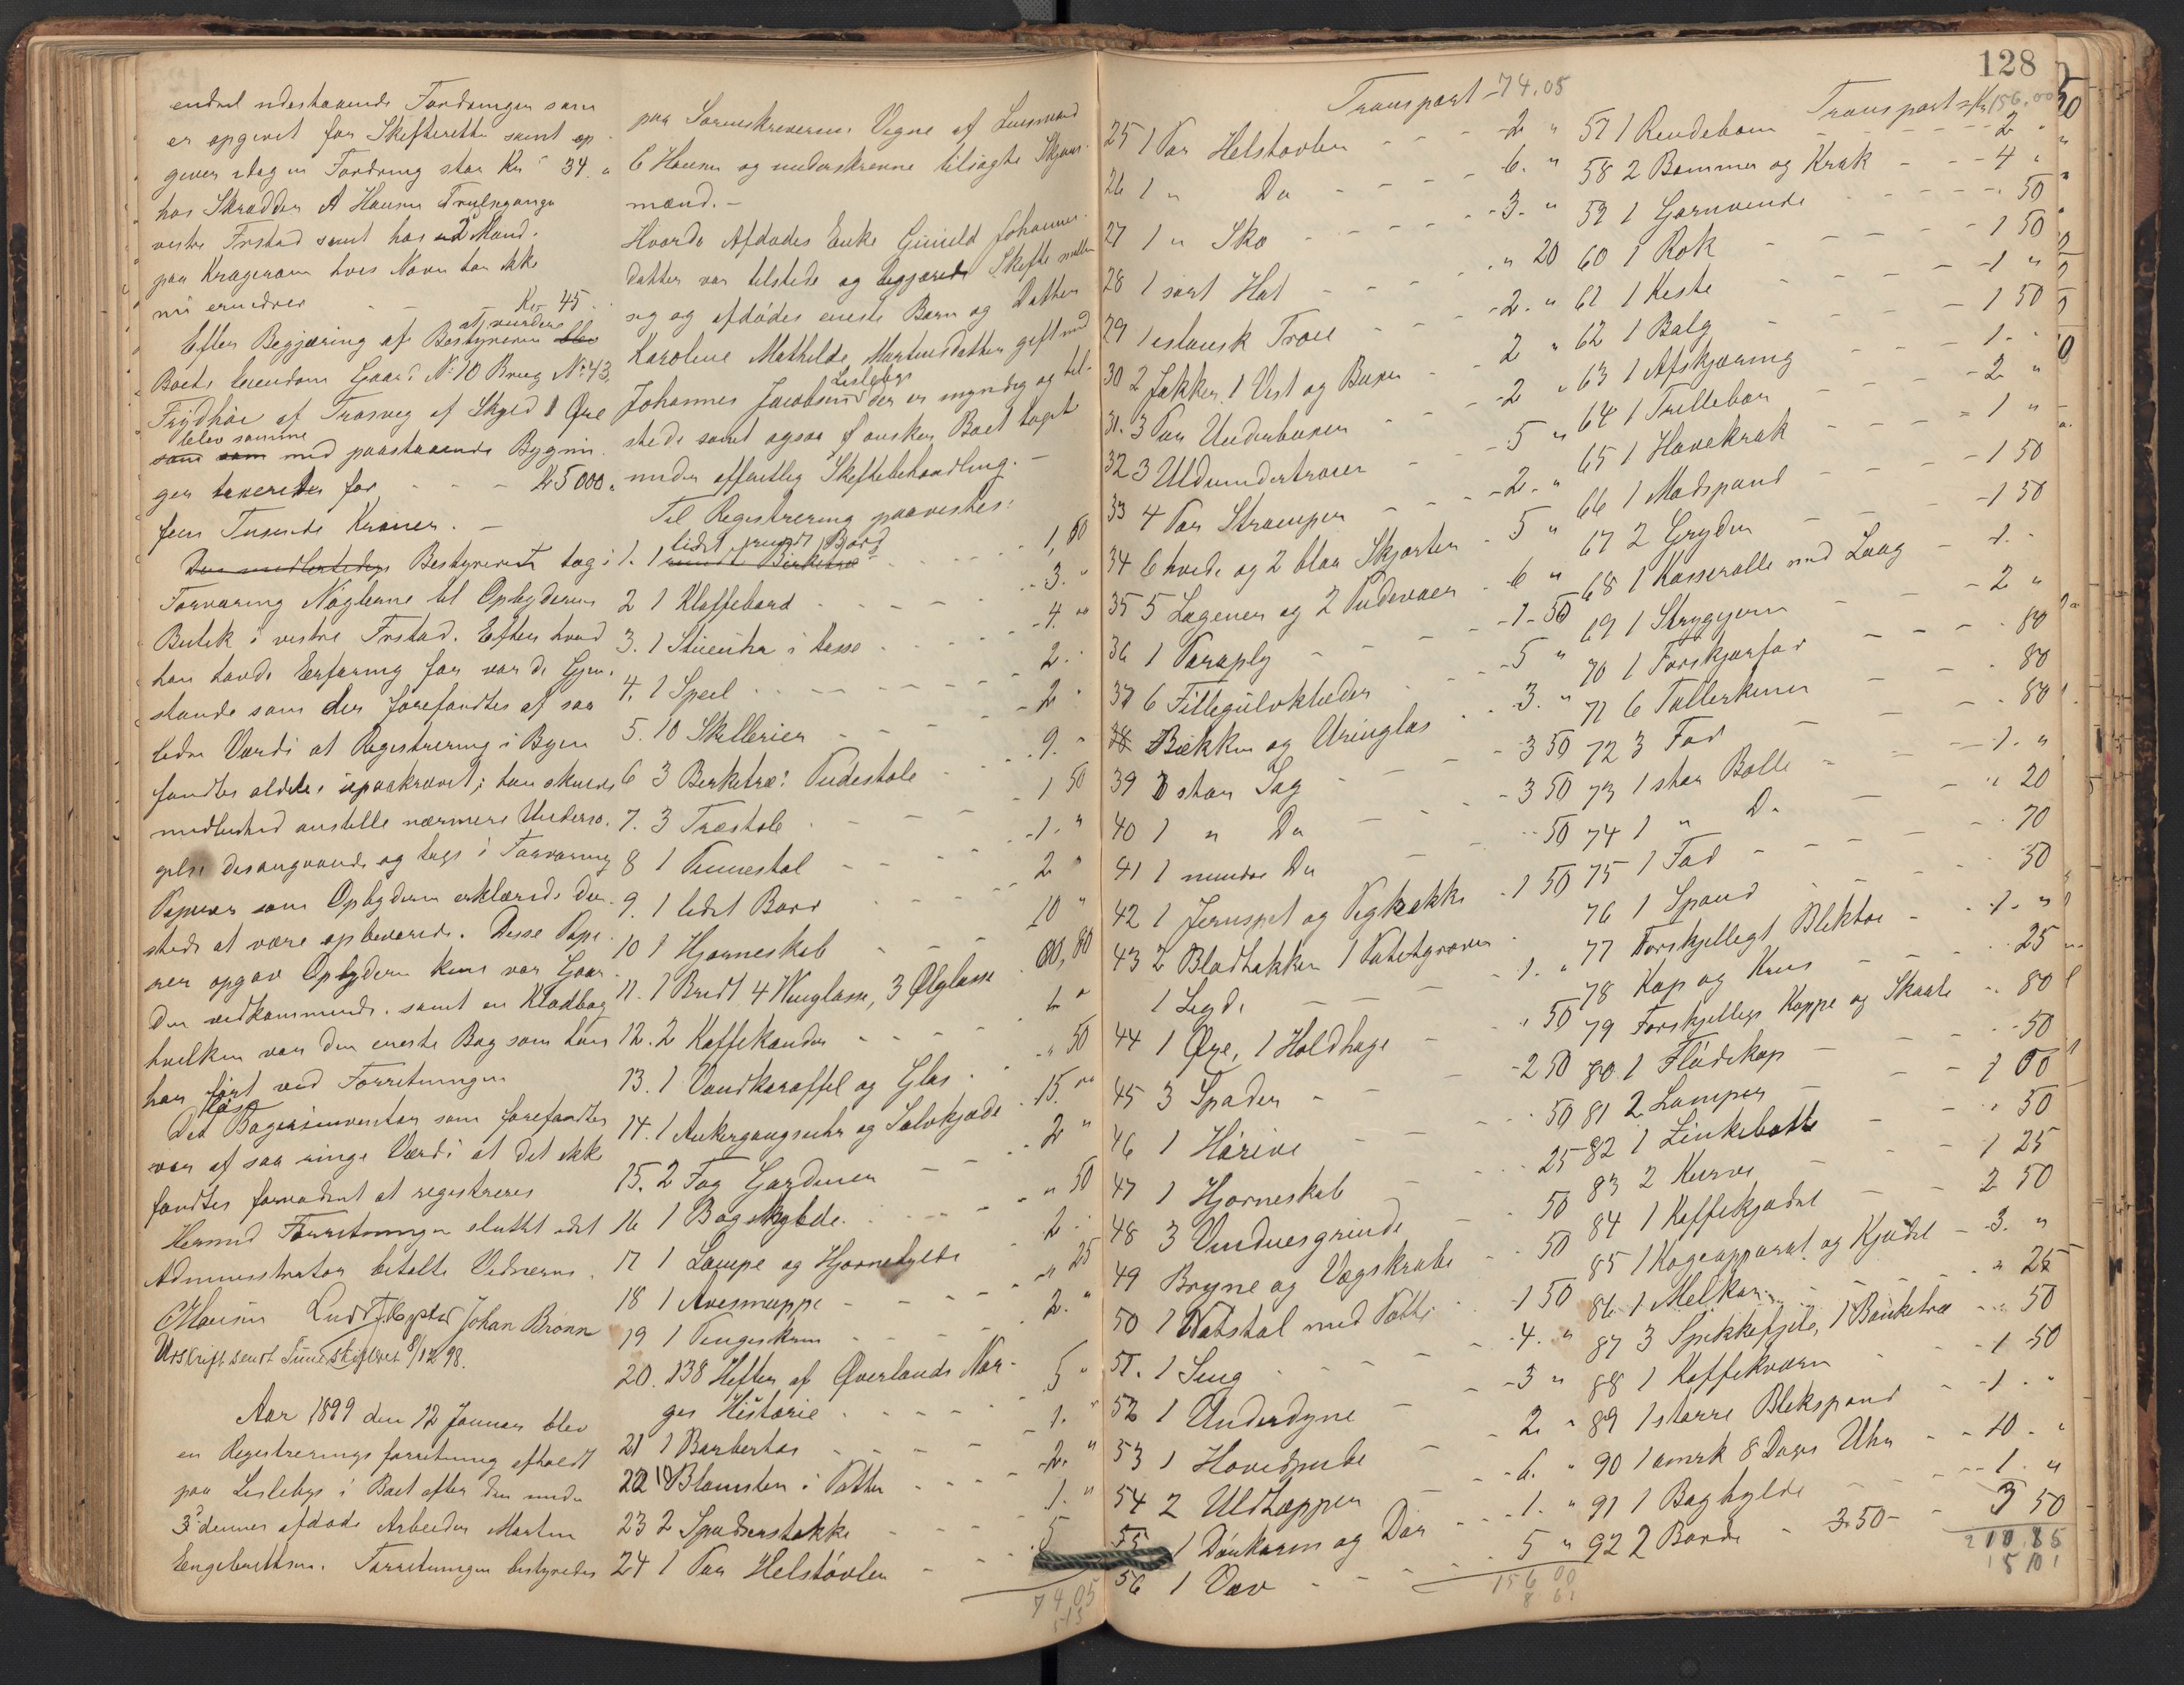 endnel udestaaende Fordringer som
er opgivet for Skifteretten samt op
giver idag en Fordring stor Kr 34 "
hos Skrædder A Hansen
vestre Trstad samt hos en Mand
paa Kragerøen hvis Navn han ikke
nu erindrer - - - Kr 45
Efter Begjæring af Bestyreren blev
at vurdere
Boets Eiendom Gaard No 10 Brug No 43,
Frydhøi af Trosvig af Skyld 1 Øre
blev samme
som som med paastaaende Bygnin
ger taxeret for - - - Kr 5000 "
fem Tusende Kroner. -
Den midlertidige Bestyreren tog i
Forvaring Nøglerne til Opbyderens
Butik i vestre Frstad. Efter hvad
han havde Erfaring for var de Gjen
stande som der forefandtes af saa
liden Værdi at Registrering i Byen
fandtes aldeles upaakrævet; han skulde
imidlertid anstille nærmere Underso.
gelse desangaaende og tages i Forvaring
Papirer som Opbyderen erklærede der
steds at være opbevarede. Disse Papi
rer opgav Opbyderen kuns var Gaar
den vedkommende, samt en Kladbog
hvilken var den eneste Bog som han
har ført ved Forretningen
Det Løsøre som forefandtes
var af saa ringe Værdi at det ikke
fandtes fornødent at registreres
Hermed Forretningen sluttet idet
Administrator betalte Vidnerne.
CHansen Johan Bronn
Udskrift sendt 8/12 98.
Aar 1899 den 12 Januar blev
en Registreringsforretning afholdt
paa Lisleby i Boet efter den under
3' dennes afdøde Arbeider Martin
Engebretsen. Forretningen bestyredes
paa Sorenskriverens Vegne af Lensmand
C Hansen og underskrevne tilsagte Skjøns
mænd. -
Hvorda Afdødes Enke Gunild Johannes
datter var tilstede og begjærede Skifte mellem
sig og afdødes eneste Barn og Datter
Karoline Mathilde Martinsdatter gift med
Lisleby
Johannes Jacobsen der er myndig og til-
stede samt ogsaa ønsker Boet taget
under offentlig Skiftebehandling. -
Til Registrering paavistes:
lidet rundt Bord
1. 1 rundt Birketræ - 1,50
2 1 Klaffebord - 3. "
3. 1 Stueuhr i Kasse - 4. "
4. 1 Speil - 2. "
5. 10 Skillerier - 2 "
6 3 Berketræ: Pudestole - 9. "
7. 3 Træstole - 1 50
8 1 Pinnestol - 1. "
9. 1 lidet Bord - 2 "
10 1 Hjørneskab - 10 "
11. 1 Bredt 4 Vinglasse, 3 Ølglasse - 00,80
12. 2 Kaffekander - 1 "
13. 1 Vandkaraffel og Glas - " 50
14. 1 Ankergangsuhr og Sølvkjæde - 15. "
15. 2 Fag Gardiner - 2 "
16 1 Boghylde - " 50
17 1 Lampe og Hjørnehylde - 2 "
18 1 Avismappe - " 25
19 1 Pengeskrin - 2. "
20. 138 Hefter af Øverlands Nor-
ges Historie - 5 "
21 1 Barbertøi - 1. "
22 10 Blomster i Potter - 2. "
23 2 Spadserstokke - 1. "
24 1 Par Helstøvler - 5
74,05
128
Transport - 74.05
25 1 Par Helstøvler - 2 "
26 1 " Do - 6. "
27 1 " Sko - 3. "
28 1 sort Hat - " 20
29 1 islansk Trøie - 2. "
30 2 Jakker, 1 Vest og Buxer - 2 "
31. 3 Par Underbuxer - 2 "
32 3 Uldundertrøier - 5 "
33 4 Par Strømper - 2. "
34 6 hvide og 2 blaa Skjorter - 5 "
35 5 Lagener og 2 Pudevaer - 6 "
36 1 Paraply - 1. 50
37 6 Fillegulvklæder - 5 "
38 Bækken og Uringlas - 3. "
39 1 stor Sag - 3 50
40 1 " Do - 3 50
41 1 mindre Do - 50
42 1 Jernspet og Vegkrakke - 1 50
43 2 Bladhakker 1 Potetgraver
1 Ligde - 1. "
44 1 Øxe, 1 Holdhage - " 50
45 3 Spader - 2 50
46 1 Hórive - 50
47 1 Hjørneskab - 25
48 3 Vinduesgrinde - 50
49 Bryne og Vægskrabe - 50
50 1 Natstol med Potte - 1 50
51. 1 Seng - 4. "
52 1 Underdyne - 3 "
53 1 Hovedpude - 2 "
54 2 Uldtæpper - 6. "
55 1 Dørkarm og Dør - 1. "
56 1 Væv - 5 "
156 00
Transport = Kr 156.00
57 1 Rendebom - 2 "
58 2 Bommer og Krak - 4 "
59 1 Garnvinde - 50
60 1 Rok - 1 50
61 1 Kiste - 1 "
62 1 Balg - 1 50
63 1 Afskjæring - 1. "
64 1 Trillebør - 2 "
65 1 Havekrak - 1 "
66 1 Madspand - 1 50
67 2 Gryder - 1 50
68 1 Kasserolle med Laag - 1. "
69 1 Strygejern - 2 "
70 1 Forskjærfad - 80
71 6 Tallerkener - 80
72 3 Fad - 80
73 1 stor Bolle - 1. "
74 1 " Do - " 20
75 1 Fad - 70
76 1 Spand - 50
77 Forskjelligt Bliktøi - 1. "
78 Kop og Krus - 25
79 Forskjellige Koppe og Skaale - 80
80 1 Flødekop - 50
81 2 Lamper - 1 00
82 1 Zinkebøtte - " 50
83 2 Kurve - 1 25
84 1 Kaffekjedel - 2 50
85 1 Kogeapparat og Kjedel - 3. "
86 1 Melkar - " 25
87 3 Spikkefjele, 1 Bankebræ - " 50
88 1 Kaffekværn - 1 50
89 1 større Blekspand - 1. "
90 1 amrk 8 Dages Uhr - 10. "
91 1 Boghylde - 1. "
92 2 Borde - 3.50 - 3 50
210.85